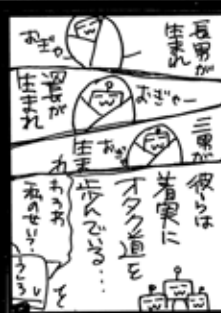 長男が
生まれ
おぎゃー
次男が
生まれ
おぎゃー
三男が
生まれ
おぎゃ
彼らは
着実に
オタク道を
歩んでいる…
私のせい?